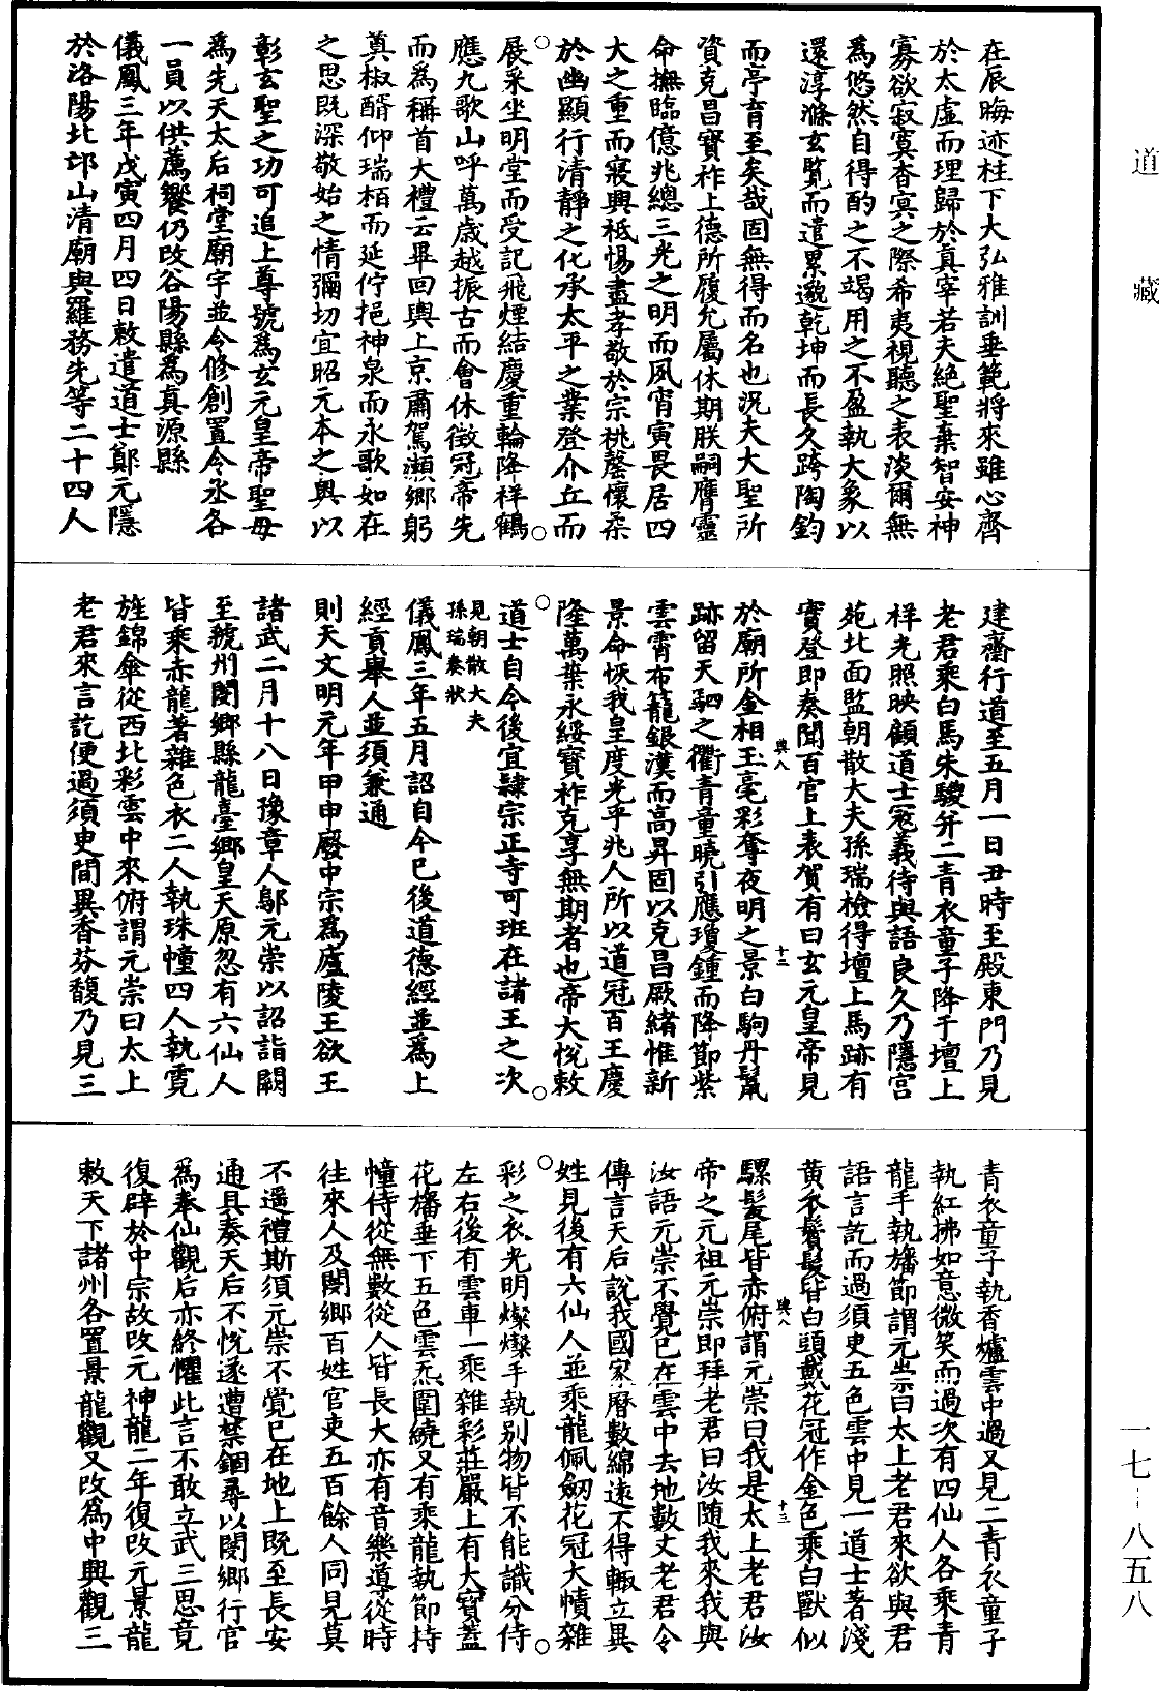 道藏
在辰晦迹柱下大弘雅訓垂範將來雖心齊
於太虛而理歸於真宰若夫絕聖棄智安神
寡欲寂寞杳冥之際希夷視聽之表淡爾無
為悠然自得酌之不竭用之不盈執大象以
還淳滌玄覽而遣累邈乾坤而長久跨陶鈞
而亭育至矣哉固無得而名也況夫大聖所
資克昌寶祚上德所履允屬休期朕嗣膺靈
命撫臨億兆總三光之明而夙宵寅畏居四
大之重而寢興祗惕盡孝敬於宗祧罄懷柔
於幽顯行清靜之化承太平之業登介丘而
○展采坐明堂而受記飛煙結慶重輪降祥鶴○
應九歌山呼萬歲越振古而會休徵冠帝先
而為稱首大禮云畢回輿上京肅駕瀨鄉躬
奠椒醑仰瑞栢而延佇挹神泉而永歌如在
之思既深敬始之情彌切宜昭元本之奧以
彰玄聖之功可追上尊號為玄元皇帝聖母
為先天太后祠堂廟宇並令修創置令丞各
一員以供薦饗仍改谷陽縣為真源縣
儀鳳三年戊寅四月四日敕遣道士鄭元隱
於洛陽北邙山清廟與羅務先等二十四人
建齋行道至五月一日丑時至殿東門乃見
老君乘白馬朱騣并二青衣童子降于壇上
祥光照映顧道士寇義待與語良久乃隱宫
苑北面監朝散大夫孫瑞檢得壇上馬跡有
實登即奏聞百官上表賀有曰玄元皇帝見
輿八
十二
於廟所金相玉毫彩奪夜明之景白駒丹鬣
跡留天駟之衢青童曉引應瓊鍾而降節紫
雲霄布籠銀漢而高昇固以克昌厥緒惟新
景命恢我皇度光乎兆人所以道冠百王慶
隆萬葉永綏寶祚克享無期者也帝大悅敕
○道士自今後宜隸宗正寺可班在諸王之次○
見朝散大夫
孫瑞奏狀
儀鳳三年五月詔自今已後道德經並為上
經貢舉人並須兼通
則天文明元年甲申廢中宗為廬陵王欲王
諸武二月十八日豫章人鄔元崇以詔詣闕
至虢州閿鄉縣龍臺鄉皇天原忽有六仙人
皆乘赤龍著雜色衣二人執珠幢四人執霓
旌錦傘從西北彩雲中來俯謂元崇曰太上
老君來言訖便過須臾間異香芬馥乃見三
青衣童子執香爐雲中過又見二青衣童子
執紅拂如意微笑而過次有四仙人各乘青
龍手執旛節謂元崇曰太上老君來欲與君
語言訖而過須臾五色雲中見一道士著淺
黃衣鬢髮皆白頭戴花冠作金色乘白獸似
輿八
十三
騾髮尾皆赤俯謂元崇曰我是太上老君汝
帝之元祖元崇即拜老君曰汝隨我來我與
汝語元崇不覺已在雲中去地數丈老君令
傳言天后說我國家曆數綿遠不得輒立異
姓見後有六仙人並乘龍佩劒花冠大幘雜
○彩之衣光明燦燦手執別物皆不能識分侍○
左右後有雲車一乘雜彩莊嚴上有大寶蓋
花旛垂下五色雲炁圍繞又有乘龍執節持
幢侍從無數從人皆長大亦有音樂道從時
往來人及閿鄉百姓官吏五百餘人同見莫
不遥禮斯須元崇不覺已在地上既至長安
通具奏天后不悅遂遭禁錮尋以閿鄉行宮
為奉仙觀后亦終懼此言不敢立武三思竟
復辟於中宗故改元神龍二年復改元景龍
敕天下諸州各置景龍觀又改為中興觀三
一七-八五八